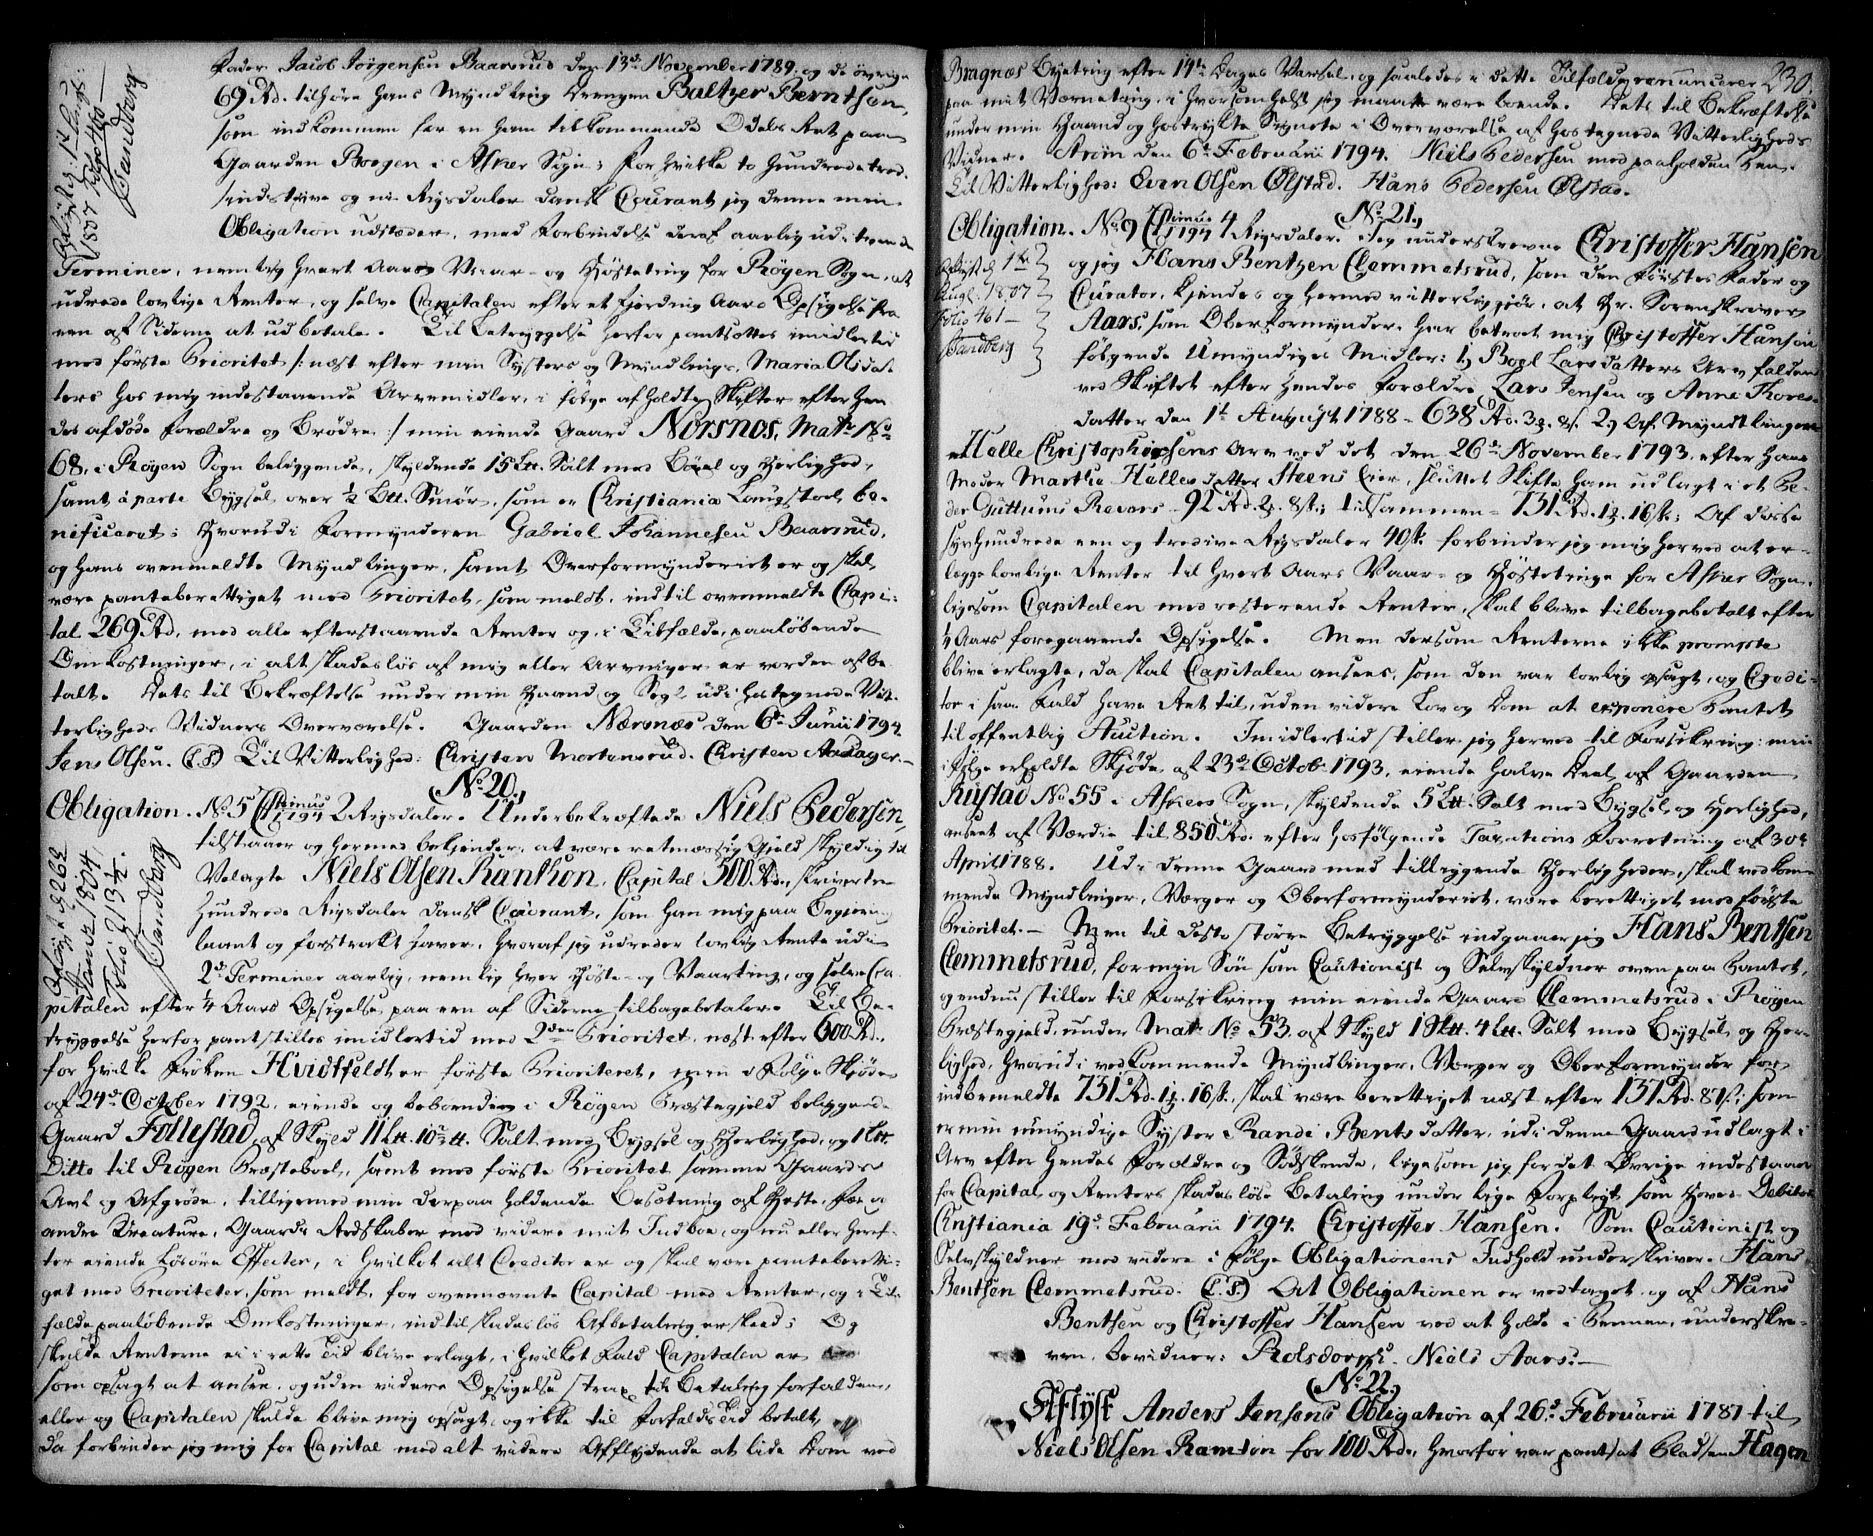 Fader Jacob Jørgensen Baarsrud den 13de November 1789. og de øvrige
69 Rd. tilhøre Hans Myndling Drengen Baltzer Berntsen,
som indkommen for en ham tilkommende Odels Ret paa
Gaarden Borgen i Asker Sogn; For hvilke to Hundrede tred-
sindstyve og ni Rigsdaler dansk Courant jeg denne min
Obligation udstæder, med Forbindelse deraf aarlig udi tvende
Terminer, nemlig hvert Aars Vaar- og Høsteting for Røgen Sogn, at
udrede lovlige Renter, og selve Capitalen efter et fierding Aars Opsigelse fra
een af Siderne at udbetale. Til Betryggelse herfor pantsættes imidlertid
med første Prioritet /: næst efter min Systers og Myndlings, Maria Olsdat-
ters hos mig indestaaende Arvemidler, i følge afholdte Skifter efter hen-
des afdøde Forældre og Brødre :/ min eiende Gaard Norsnæs, Matr. No
68, i Røgen Sogn beliggende, skyldende 15 Lit. Salt med Bøxel og Herlighed,
samt à parte Bygsel over ½ Lit. Smør, som er Christiania Laugstoel be-
nificeret; Hvorudi Formynderen Gabriel Johannesen Baarsrud,
og hans ovenmeldte Myndlinger, samt Overformynderiet er og skal
være panteberettiget med Prioritet, som meldt, indtil ovenmeldte Capi-
tal 269 Rd, med alle efterstaaende Renter og, i Tilfælde, paaløbende
Omkostninger, i alt skadesløs af mig eller Arvinger er vorden afbe-
talt. Dets til Bekræftelse under min Haand og Segl udi hostegnede Vit-
terligheds Vidners Overværelse. Gaarden Nærsnæs, den 6te Junii 1794.
Jens Olsen. (L.S.) Til Vitterlighed: Christen Mortensrud. Christen Audager.
No 20.
Obligation. No 5 Primus 1794 2 Rigsdaler. Underbekræftede Niels Pedersen,
tilstaaer og hermed bekiender, at være retmæssig Gield skyldig til
Velagte Niels Olsen Ramton, Capital 500 Rd., skriver fem
Hundrede Rigsdaler dansk Courant, som han mig paa Begiering
laant og forstrakt haver, hvoraf jeg udreder lovlig Rente udi
2de Terminer aarlig, nemlig hver Høste- og Vaarting, og selve Ca-
pitalen efter ¼ Aars Opsigelse paa een af Siderne tilbagebetaler. Til Be-
tryggelse herfor pantstilles imidlertid med 2den Prioritet, næst efter 600 Rd.
for hvilke Frøken Hvidtfeldt er første Prioriteret, min i Følge Skjøde
af 24de October 1792, eiende og beboende i Røgen Præstegield beliggende
Gaard Follestad, af Skyld 11 Lit. 10 ½ tt. Salt med Bygsel og Herlighed, og 1 Lit.
Ditto til Røgen Præsteboel, samt med første Prioritet samme Gaards
Avl og Afgrøde, tilligemed min derpaa holdende Besætning af Heste, Fæe og
andre Creature, Gaards Redskaber med videre mit Indboe, og nu eller heref-
ter eiende Løsøre Effecter, i hvilket alt Creditor er og skal være panteberetti-
get med Prioriteter, som meldt, for ovennævnte Capital med Renter, og i Til-
fælde paaløbende Omkostninger, indtil skadesløs Afbetaling er skeed; Og
skulde Renterne ei i rette Tid blive erlagt, i hvilket Fald Capitalen er
som opsagt at ansee, og uden videre Opsigelse strax til Betaling forfalden,
eller og Capitalen skulde blive mig opsagt, og ikke til Forfalds Tid betalt,
da forbinder jeg mig for Capital med alt videre Afflydende at lide Dom ved
Afløst d. 1ste Augusti
1807 Folio 460
Sandberg
Afløst d. 26de
Januar 1804
Folio 213 ½.
Sandberg
230.
Bragnæs Byeting efter 14te Dages Varsel, og saaledes i dette Tilfælde renuncerer
paa mit Værneting, i hvorsomhelst jeg maatte være boende. Dets til Bekræftelse
under min Haand og hostrykte Signete i Overværelse af hostegnede Vitterligheds
Vidner. Strøm den 6te Februarii 1794. Niels Pedersen med paaholden Pen.
Til Vitterlighed: Even Olsen Ølstad. Hans Pedersen Ølstad.
No 21.
Obligation. No 9 Primus 1794 4 Rigsdaler. Jeg underskrevne Christoffer Hansen
og jeg Hans Bentzen Clemmetsrud, som den førstes Fader og
Curator, kiendes og hermed vitterliggiør, at Hr. Sorenskriver
Aars, som Overformynder har betroet mig Christoffer Hansen
følgende Umyndiges Midler: 1) Boel Larsdatters Arv falden
ved Skiftet efter hendes Forældre Lars Jensen og Anne Thores-
datter den 1te August 1788 - 638 Rd. 3 z. 8 s. 2) Af Myndtlingen
Helle Christophersens Arv ved det den 26de November 1793. efter hans
Moder Marthe Hellesdatter Steens Eier, sluttet Skifte ham udlagt i et Be-
der Guttums Revers - 92 Rd. 2 z. 8 s.; tilsammen - 731 Rd. 1 z. 16 s.; Af disse
syvhundrede een og tredive Rigsdaler 40 s. forbinder jeg mig herved at er-
lægge lovlige Renter til hvert Aars Vaar- og Høsteting for Asker Sogn,
ligesom Capitalen med resterende Renter, skal blive tilbagebetalt efter
¼ Aars foregaaende Opsigelse. Men dersom Renterne ikke prompte
blive erlagte, da skal Capitalen ansees, som den var lovlig opsagt, og Credi-
tor i saa Fald have Ret til, uden videre Lov og Dom at exponere Pantet
til offentlig Auction. Imidlertid stiller jeg herved til Forsikring: min
i Følge erholdte Skjøde af 23de Octob. 1793, eiende halve Deel af Gaarden
Rustad No 55 i Askers Sogn, skyldende 5 Lit. Salt med Bygsel og Herlighed,
anseet af Værdie til 850 Rd. efter hosfølgende Taxations Forretning af 30te
April 1788. Udi denne Gaard med tilliggende Herligheder, skal vedkom-
mende Myndlinger, Værger og Overformynderiet, være berettiget med første
Prioritet. — Men til desto større Betryggelse indgaaer jeg Hans Bentsen
Clemmetsrud, for min Søn som Cautionist og Selvskyldner oven paa Pantet,
og endnu stiller til Forsikring min eiende Gaard Clemmetsrud i Røgen
Præstegield, under Matr. No 53. af Skyld 1 Skt. 4 Lit. Salt med Bygsel og Her-
lighed, hvorudi vedkommende Myndlinger, Værger og Overformynder for
indbemeldte 731 Rd. 1 z. 16 s., skal være berettiget næst efter 137 Rd. 87 s.; som
er min umyndige Syster Randi Bentsdatter, udi denne Gaard udlagt i
Arv efter hendes Forældre og Sødskende, ligesom jeg for det Øvrige indestaaer
for Capital og Renters skadesløse Betaling under lige Forpligt som Hoved Debitor
Christiania 19de Februarii 1794. Christoffer Hansen. Som Cautionist og
Selvskyldner med videre i Følge Obligationens Indhold underskriver. Hans
Bentsen Clemmetsrud. (L.S.) At Obligationen er vedtaget, og af Hans
Bentsen og Christoffer Hansen ved at holde i Pennen, underskre-
ven, bevidner: Rolsdorph. Niels Aars. —
Afløst d. 1ste
Augl. 1807
Folio 461 —
Sandberg
No 22.
Aflyst Anders Jensens Obligation af 26de Februarii 1787 til
Niels Olsen Ramton for 100 Rd., hvorfor var pantsat Pladsen Hagen